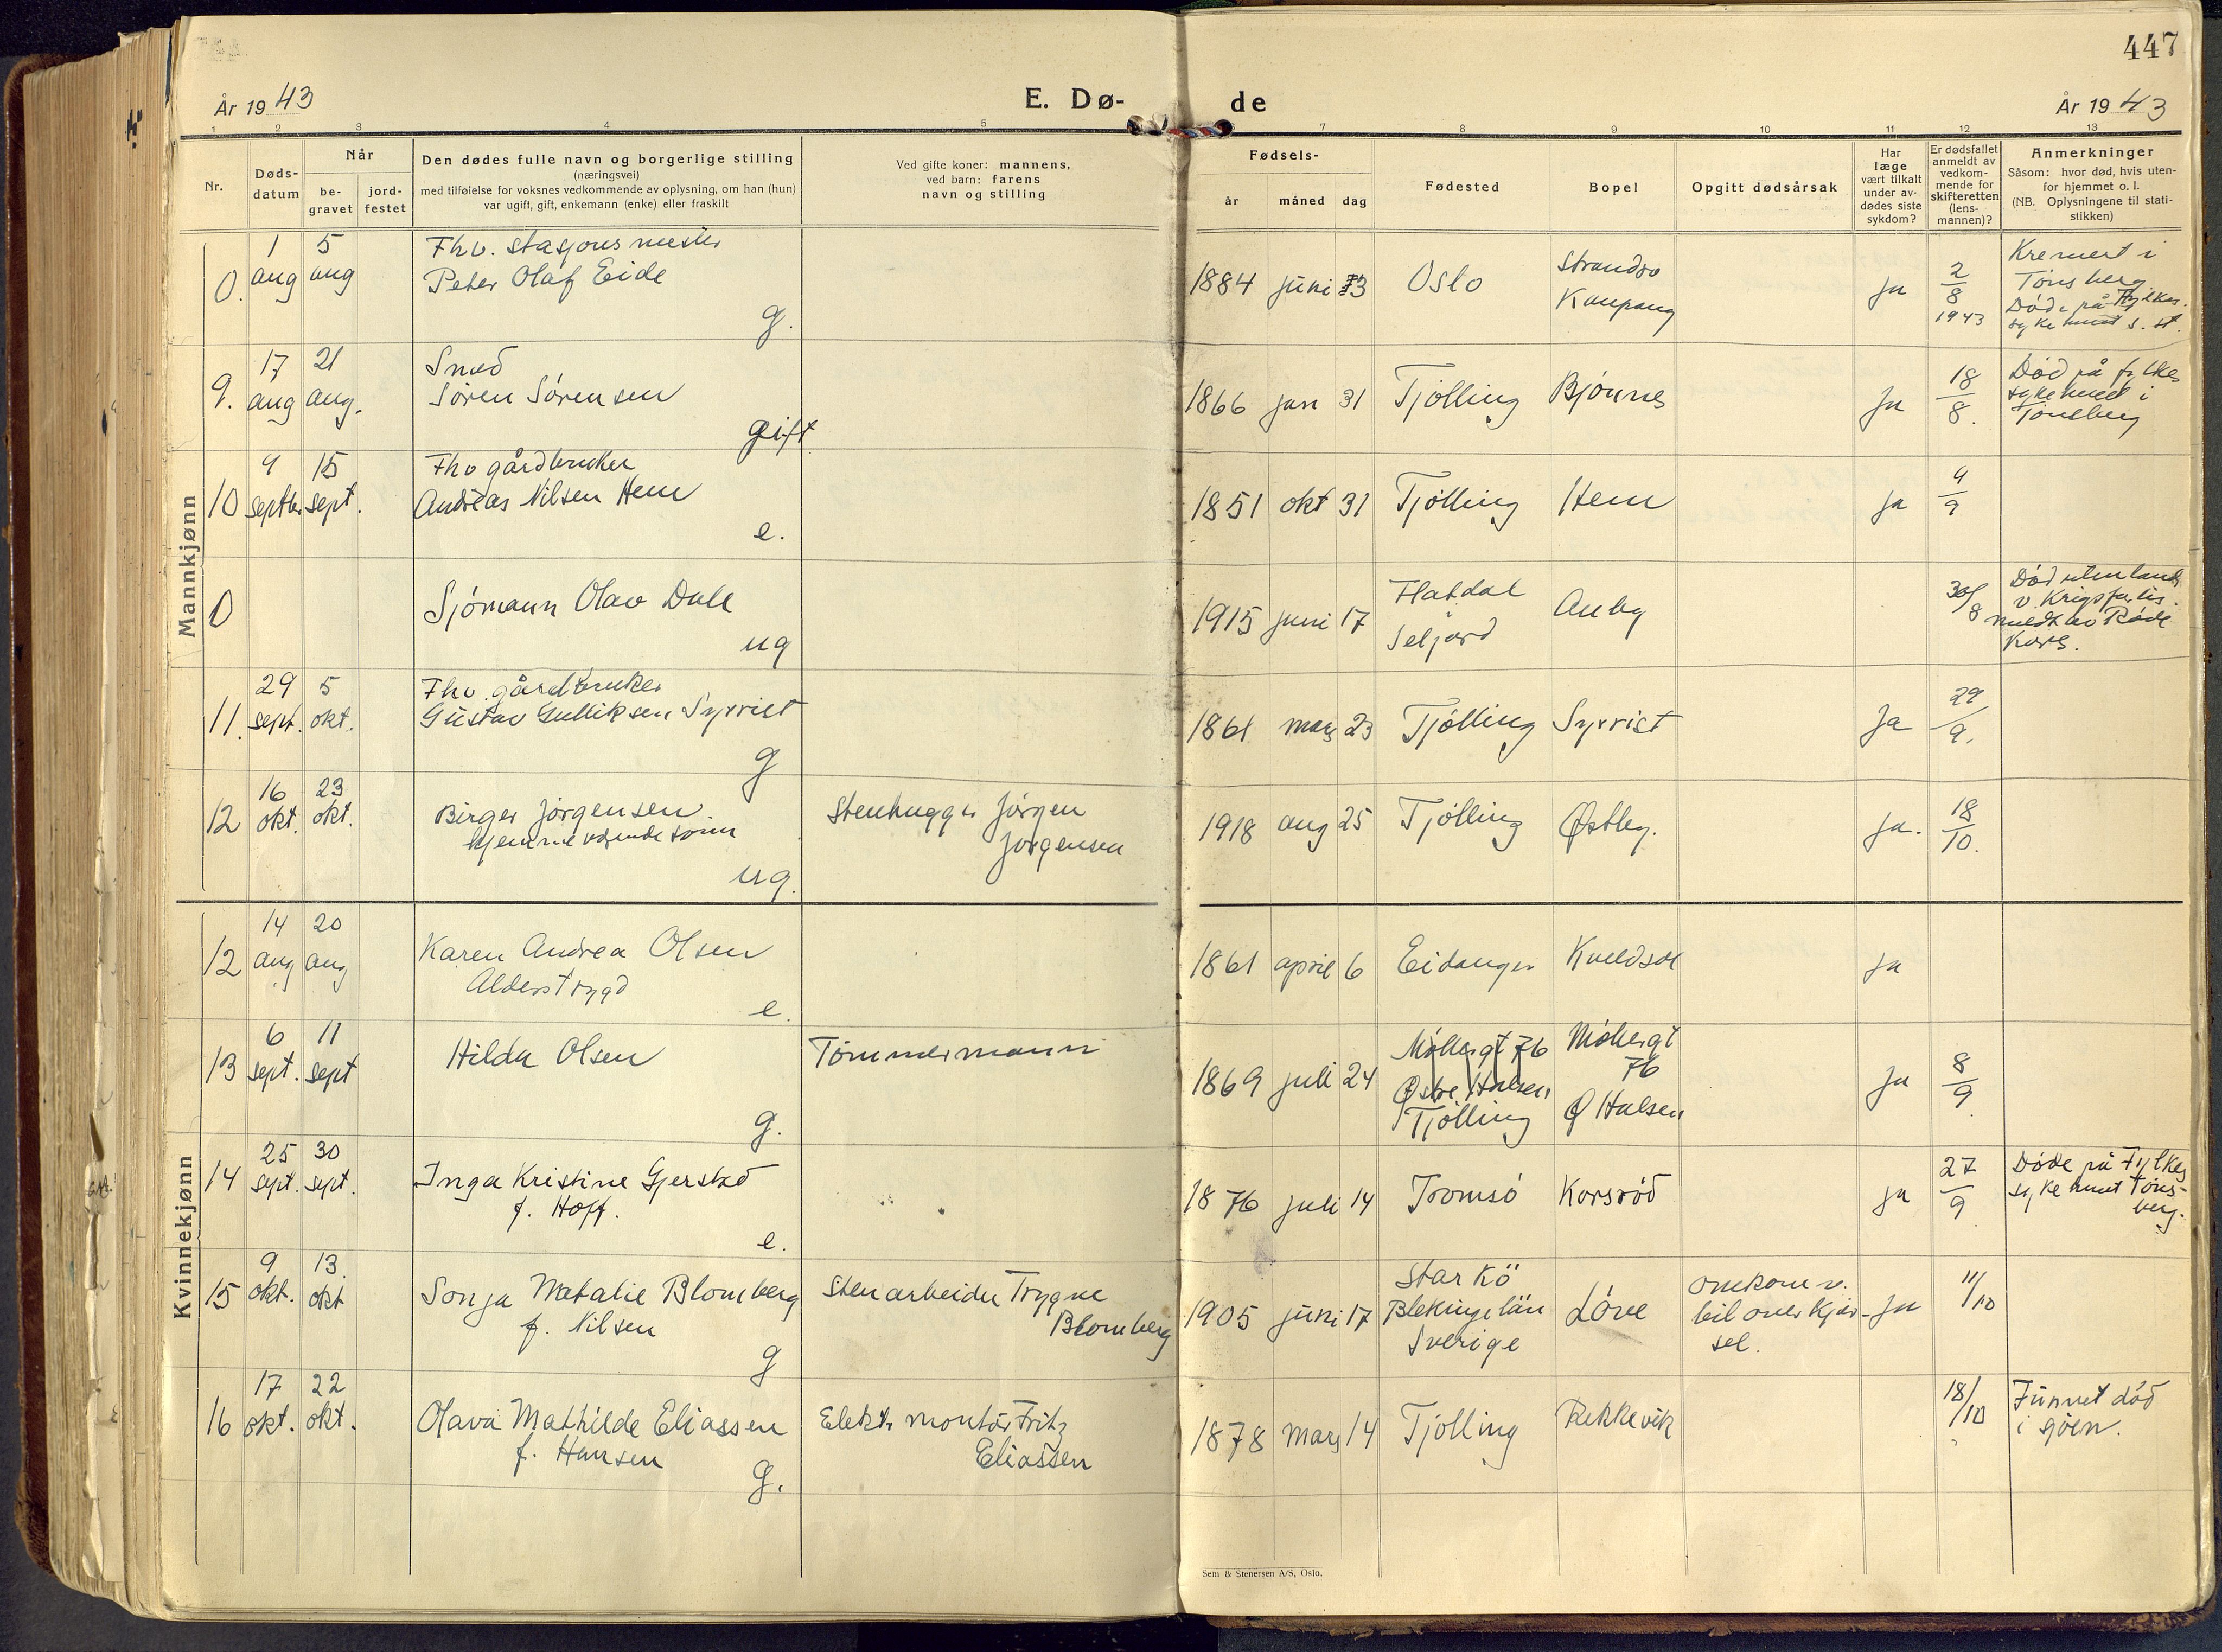 447
År 1943
E. Dø-
de
År 1943
1 2 3 4 5 6 7 8 9 10 11 12 13
Nr.
Døds-
datum
Når
be-
gravet
jord-
festet
Den dødes fulle navn og borgerlige stilling
(næringsvei)
med tilføielse for voksnes vedkommende av oplysning, om han (hun)
var ugift, gift, enkemann (enke) eller fraskilt
Ved gifte koner: mannens,
ved barn: farens
navn og stilling
Fødsels-
år måned dag
Fødested
Bopel
Opgitt dødsårsak
Har
læge
vært tilkalt
under av-
dødes siste
sykdom?
Er dødsfallet
anmeldt av
vedkom-
mende for
skifteretten
(lens-
mannen)?
Anmerkninger
Såsom: hvor død, hvis uten-
for hjemmet o. l.
(NB. Oplysningene til stati-
stikken)
Mannkjønn
0. 1 aug 5 aug
Fhv. stasjonsmester
Peter Olaf Eide
g.
1884 juni 13 Oslo
Kaupang
ja
2/8 1943
Kremert i
Tønsberg.
Døde på Fylkes.
sykehuset s. st.
9. 17 aug 21 aug.
Smed
Søren Sørensen
gift
1866 jan 31 Tjølling Bjønnes
ja
18/8.
Død på fylkes
sykehuset i
Tønsberg
10 9 septbr. 15 sept.
Fhv gårdbruker
Andreas Nilsen Hem
e.
1851 okt 31 Tjølling Hem
ja
9/9
0
Sjømann Olav Dale
ug
1915 juni 17
Flatdal
Seljord
Auby
30/8
Død utenlands
v. Krigsforlis.
meldt av Røde
Kors.
11. 29 sept. 5 okt.
Fhv. gårdbruker
Gustav Gulliksen Syrrist
g
1861 mars 23 Tjølling Syrrist
Ja
29/9.
12 16 okt. 23 okt.
Birger Jørgensen
hjemmeværende sønn
ug.
Stenhugger Jørgen
Jørgensen
1918 aug 25 Tjølling Østby.
ja.
18/10.
Kvinnekjønn
12 14 aug 20 aug
Karen Andrea Olsen
Alderstrygd
e.
1861 april 6 Eidanger Kveldsol
ja
13 6 sept. 11 sept
Hilda Olsen
g.
Tømmermann
1869 juli 24
Møllergt 76
Østre Halsen
Tjølling
Møllergt
76
Ø Halsen
ja
8/9
14 25 sept. 30 sept.
Inga Kristine Gjerstad
f. Hoff.
e.
1876 juli 14 Tromsø Korsrød
ja
27/9
Døde på Fylkes
sykehuset Tøns-
berg.
15 9 okt. 13. okt
Sonja Natalie Blomberg
f. Nilsen
g
Stenarbeider Trygve
Blomberg
1905 juni 17
Starkö
Blekinge län
Sverige
Løve
omkom v.
bil overkjør-
sel.
ja
11/10
16 17 okt. 22 okt.
Olava Mathilde Eliassen
f. Hansen
g.
Elektr montør Fritz
Eliassen
1878 mars 14 Tjølling Rekkevik
18/10
Funnet død
i sjøen.
Sem & Stenersen A/S, Oslo.